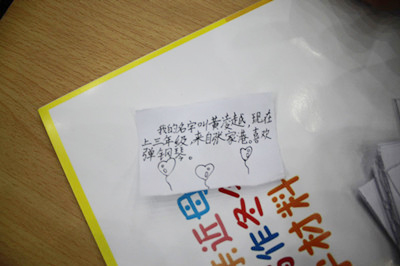 我的名字叫黄凌越,现在
上三年级,来自张家港。喜欢
弹钢琴。
近
作材料